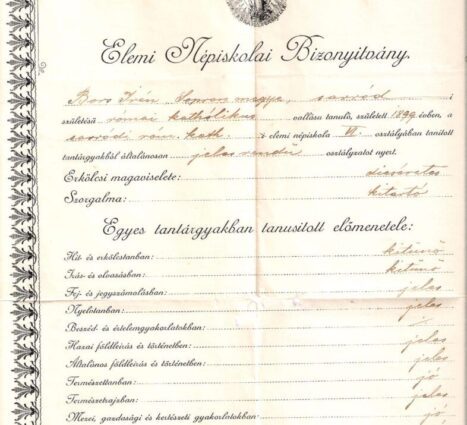 Elemi Népiskolai Bizonyitvány.
Bors Irén, Sopron megye, sarród i
születésü római katholikus vallásu tanuló, született 1899 évben, a
sarródi róm. kath. elemi népiskola VI. osztályában tanitott
tantárgyakból általánosan jeles rendü osztályzatot nyert.
Erkölcsi magaviselete: dicséretes
Szorgalma: kitartó
Egyes tantárgyakban tanusitott előmenetele:
Hit- és erkölcstanban: kitünő
Irás- és olvasásban: kitünő
Fej- és jegyszámolásban: jeles
Nyelvtanban: jeles
Beszéd- és értelemgyakorlatokban:
Hazai földleirás és történetben: jeles
Általános földleirás és történetben: jeles
Természettanban: jó
Természetrajzban: jeles
Mezei, gazdasági és kertészeti gyakorlatokban: jó